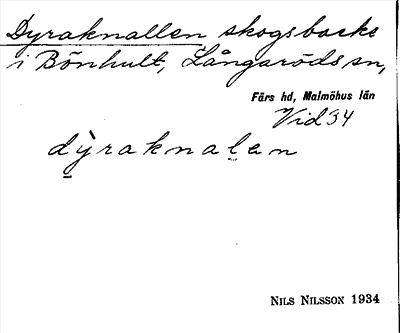 Dyraknallen skogsbacke
i Bönhult, Långaröds sn,
Färs hd, Malmöhus län
Vid 34
dỳraknalen
Nils Nilsson 1934